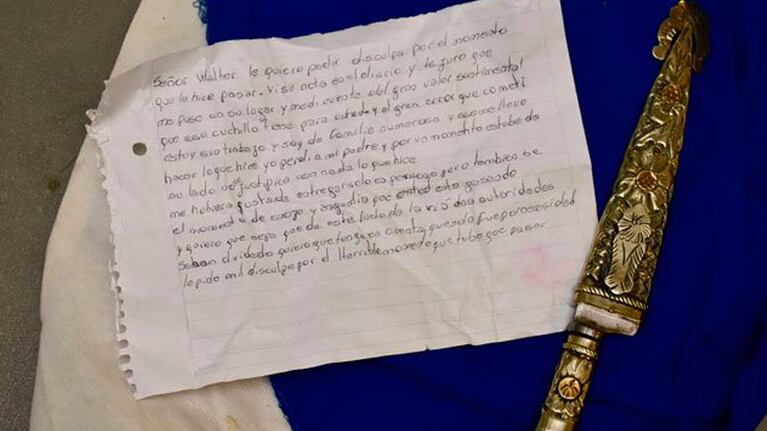 Señor Walter le quiero pedir disculpa por el momento
que le hice pasar. Vi su nota en el diario y le juro que
me puse en su lugar y me di cuenta del gran valor sentimental
que ese cuchillo tiene para usted y el gran error que cometi
estoy sin trabajo y soy de familia numerosa y eso me llevo
hacer lo que hice yo perdi a mi padre y por un momento estube de
su lado no justifico con nada lo que hice
me hubiera gustado entregarselo en persona pero tambien se
el momento de enojo y angustia que usted esta pasando
y quiero que sepa que de este lado de la vida autoridades
se han olvidado quiero que tenga en cuenta que solo fue por necesidad
le pido mil disculpa por el Horrible momento que tubo que pasar